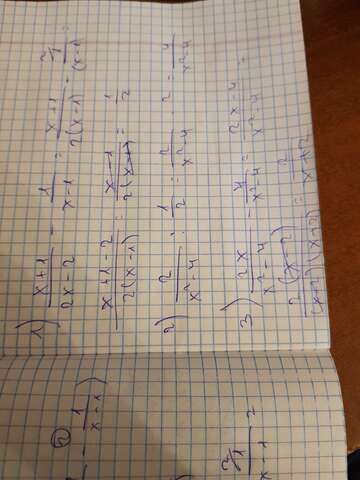 1) (x+1)/(2x-2) - 1/(x-1) = (x+1)/(2(x-1)) - 2\ 1/(x-1)
(x+1-2)/(2(x-1)) = (x-1)/(2(x-1)) = 1/2
2) 2/(x²-4) : 1/2 = 2/(x²-4) · 2 = 4/(x²-4)
3) 2x/(x²-4) - 4/(x²-4) = (2x-4)/(x²-4) =
2(x-2)/((x-2)(x+2)) = 2/(x+2)
- 1/(x-1)
2\ 1/(x-1) =